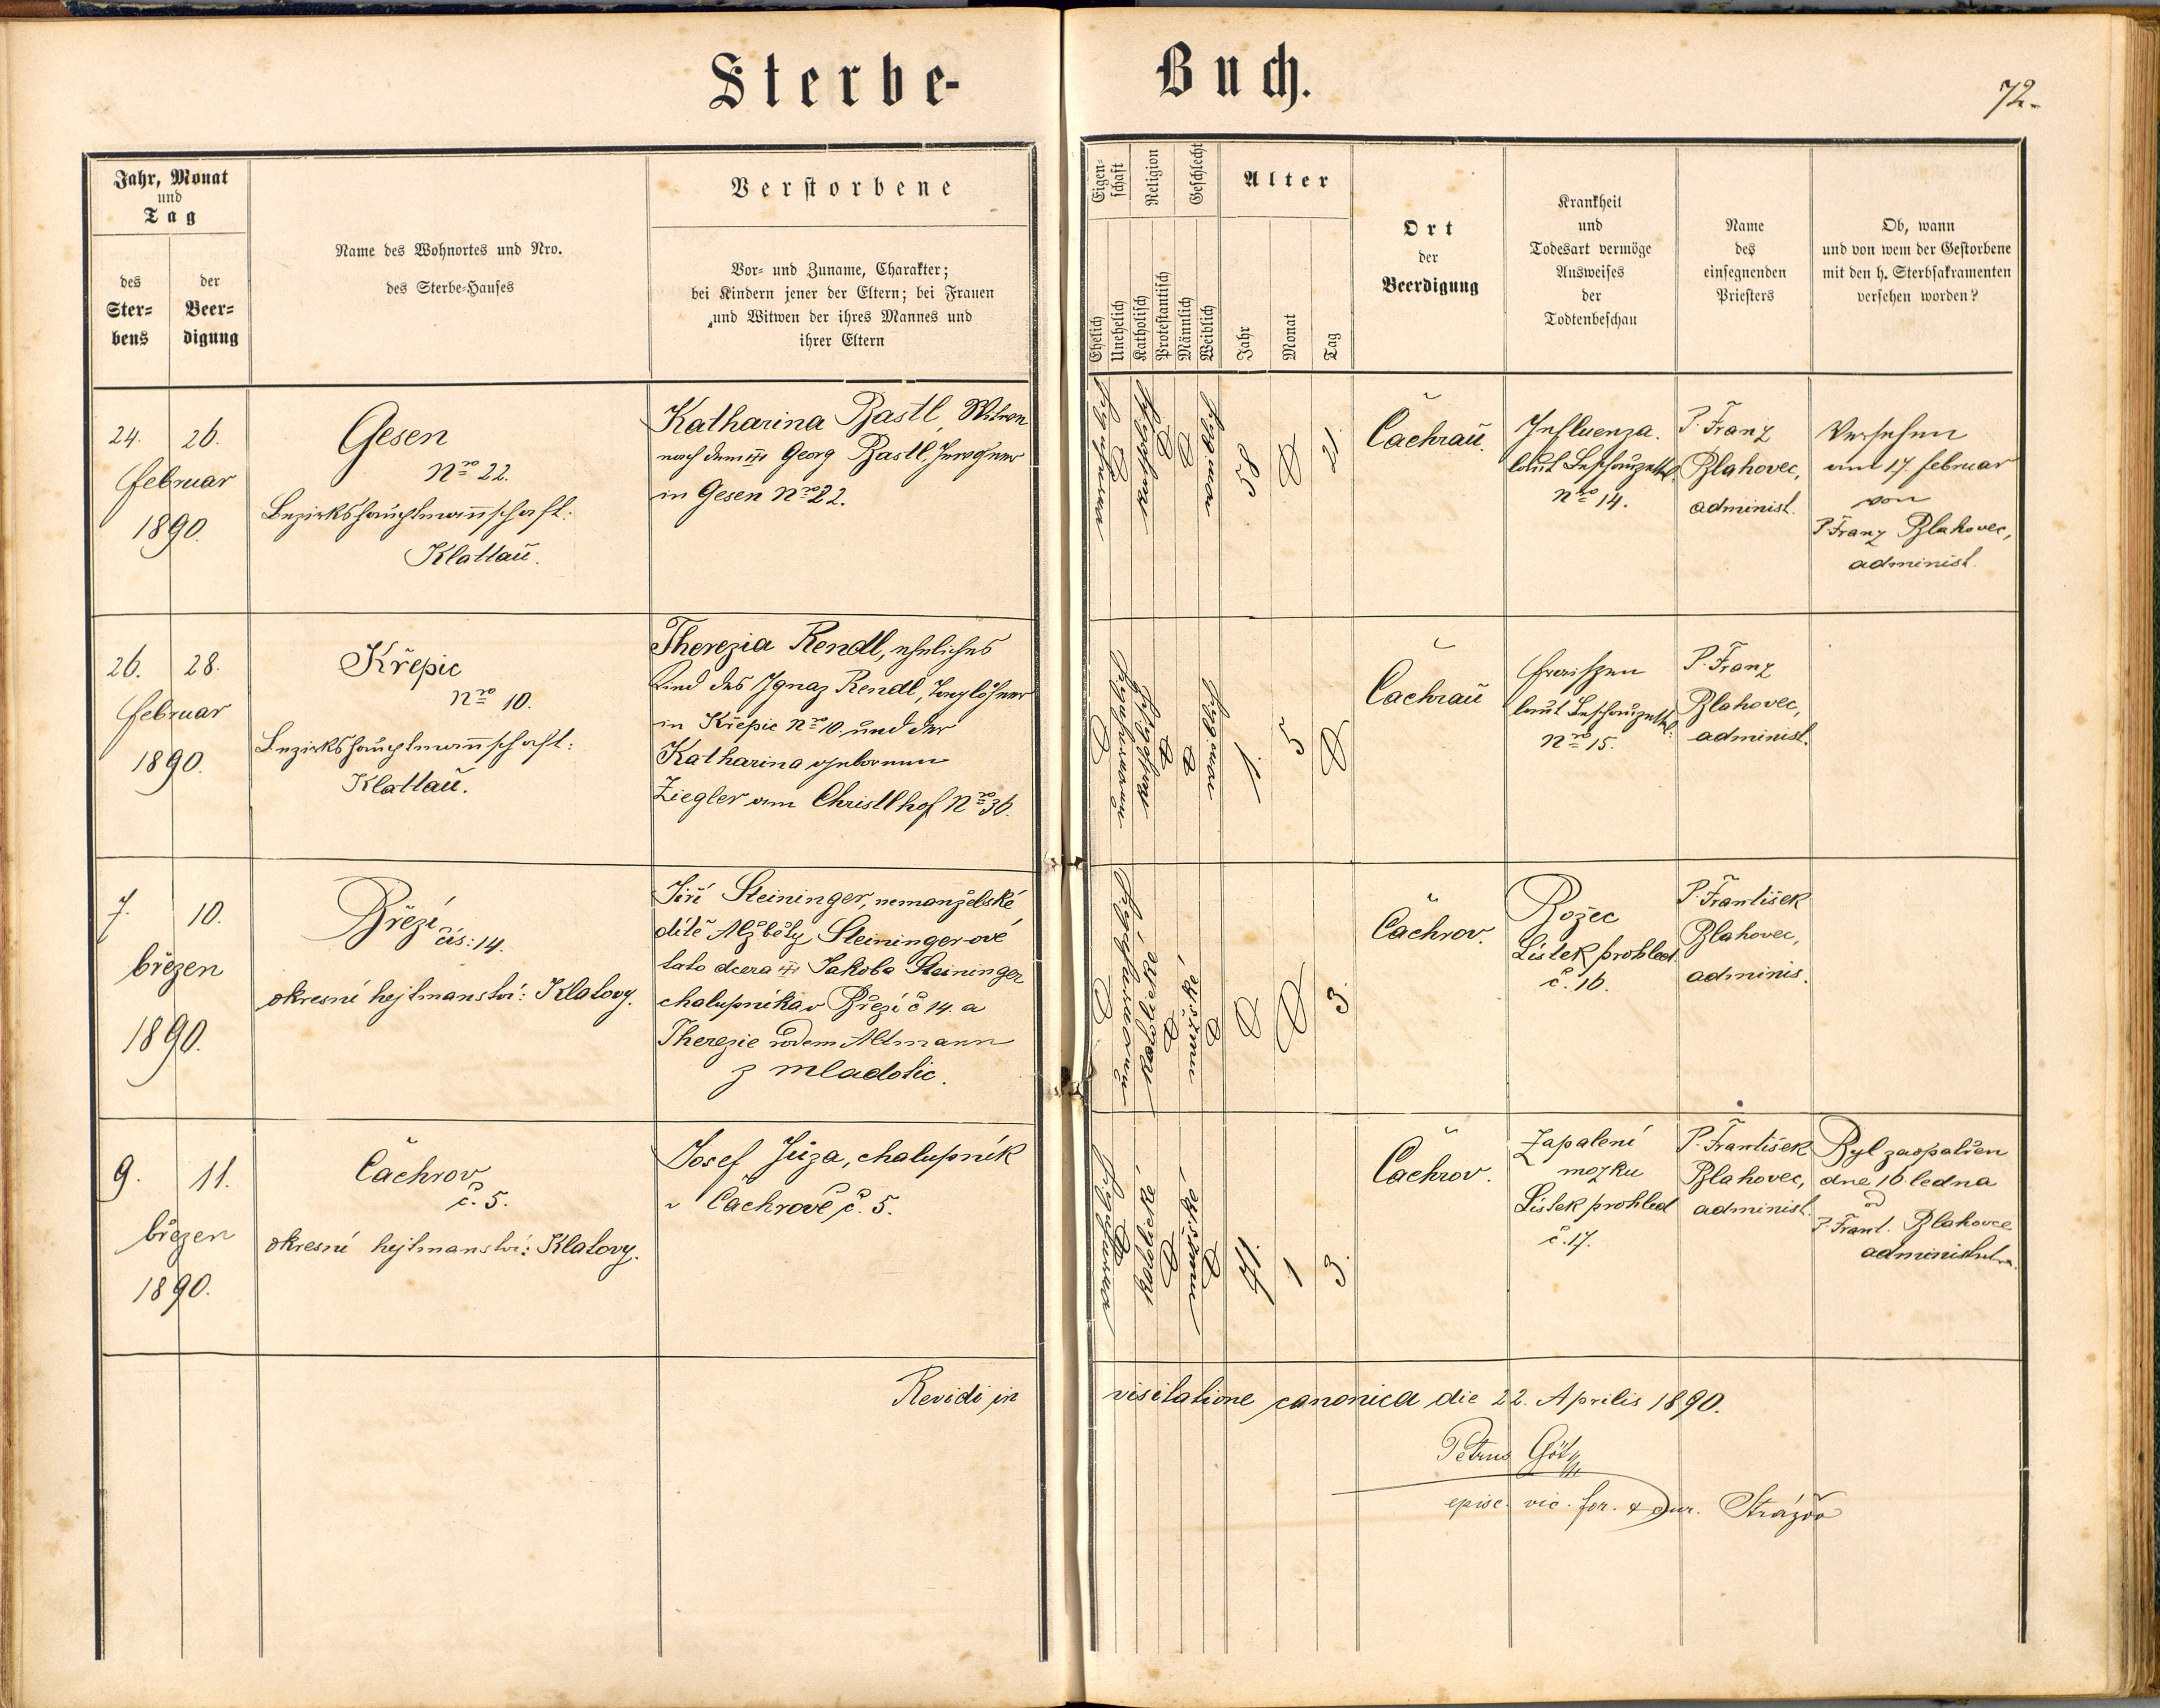 Sterbe-Buch.
72.
Jahr, Monat
und
Tag
des
Ster-
bens
der
Beer-
digung
Name des Wohnortes und Nro.
des Sterbe-Hauses
Verstorbene
Vor- und Zuname, Charakter;
bei Kindern jener der Eltern; bei Frauen
und Witwen der ihres Mannes und
ihrer Eltern
Eigen-
schaft
Religion
Geschlecht
Alter
Ehelich
Unehelich
Katholisch
Protestantisch
Männlich
Weiblich
Jahr
Monat
Tag
Ort
der
Beerdigung
Krankheit
und
Todesart vermöge
Ausweises
der
Todtenbeschau
Name
des
einsegnenden
Priesters
Ob, wann
und von wem der Gestorbene
mit den h. Sterbsakramenten
versehen worden?
24. 26.
februar
1890.
Gesen
Nro 22.
Bezirkshauptmannschaft:
Klattau.
Katharina Bastl, Witwe
nach dem Georg Bastl,
in Gesen Nro 22.
58
21.
Čachrau.
Influenza.
laut Beschauzettel
Nro 14.
P. Franz
Blahovec,
administ.
Versehen
am 17. februar
von
P. Franz Blahovec,
administ.
26. 28.
februar
1890.
Křepic
Nro 10.
Bezirkshauptmannschaft:
Klattau.
Therezia Rendl, eheliches
Kind des Ignaz Rendl, Taglöhner
in Křepic Nro 10. und der
Katharina geborenen
Ziegler am Christlhof Nro 36.
1
5
Čachrau
Fraisen
laut Beschauzettel:
Nro 15.
P. Franz
Blahovec,
administ.
7. 10.
březen
1890.
Březí
čís: 14.
okresní hejtmanství: Klatovy.
Jiří Steininger, nemanželské
dítě Alžběty Steininger-ové
tato dcera Jakoba Steininger
chalupníka v Březí č 14. a
Therezie rodem Altmann
z Mladotic.
3.
Čachrov.
Božec
Lístek prohled.
č. 16.
P. František
Blahovec,
adminis.
9. 11.
březen
1890.
Čachrov
č. 5.
okresní hejtmanství: Klatovy.
Josef Jůza, chalupník
v Čachrově č. 5.
katolické
mužské
71.
1
3.
Čachrov.
Zapalení
mozku
Lístek prohled
č. 17.
P. František
Blahovec,
administ.
Byl zaopatřen
dne 16 ledna
od
P. Frant. Blahovce
Revidi in visitatione canonica die 22. Aprilis 1890.
Petrus Götz
episc. vic. for. & cur. Strážov